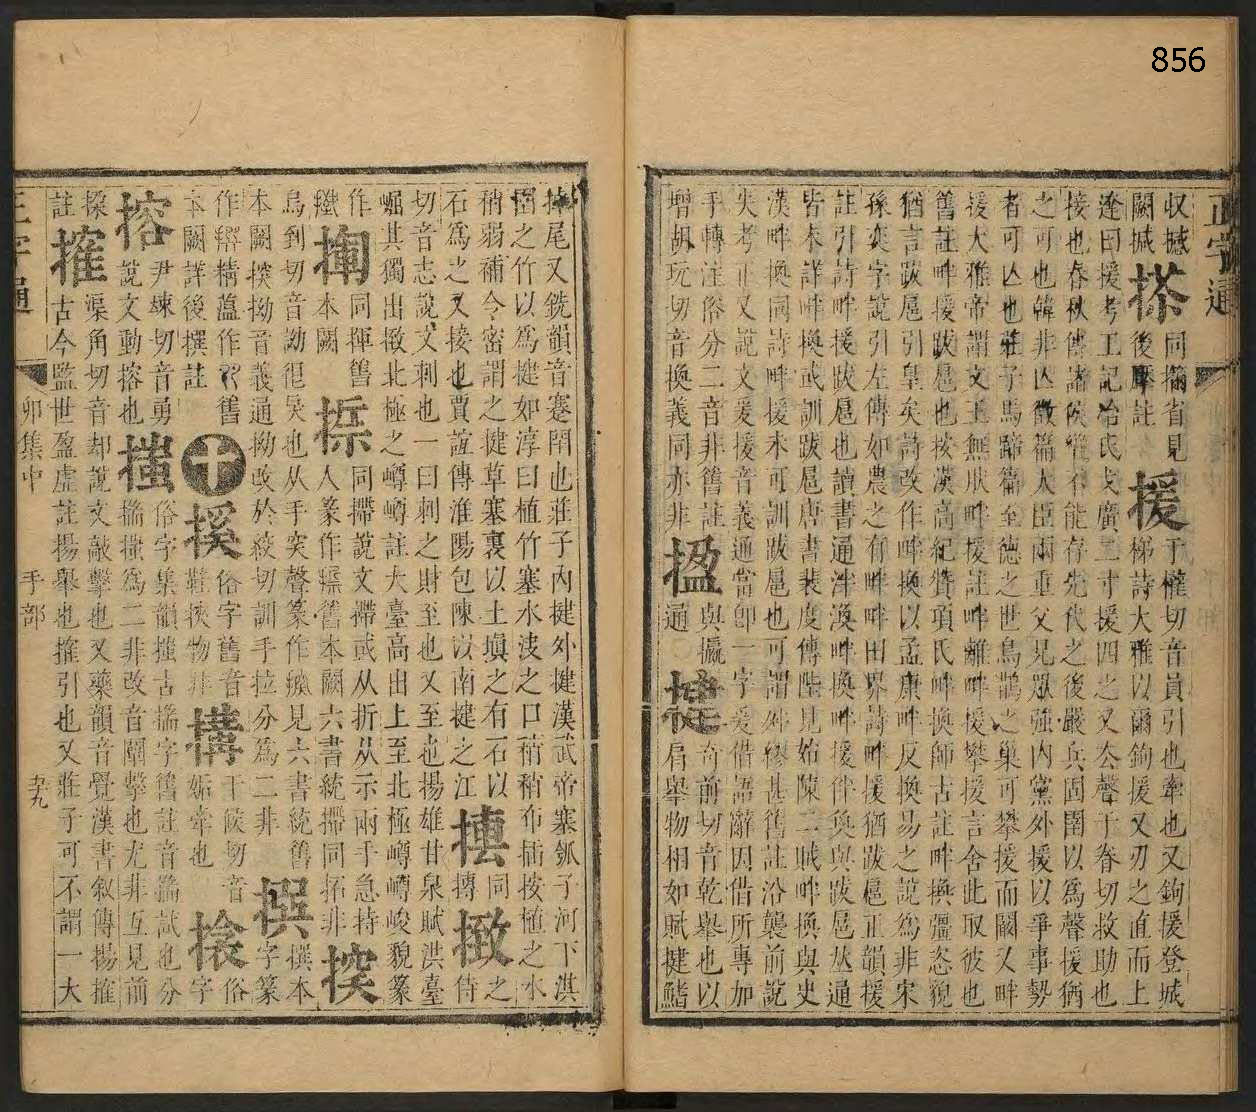 856
正字通
收撼
闕摵搽同搨省見後摩註援于權切音員引也牽也又鉤援登城
梯詩大雅以爾鉤援又刃之直而上
達曰援考工記冶氏戈廣二寸援四之又去聲于眷切救助也
接也春秋傳諸侯雖不能存先代之後嚴兵固圉以爲聲援猶
之可也韓非八徵篇大臣兩重父兄眾強內黨外援以爭事勢
者可亾也莊子馬蹄篇至德之世烏鵲之巢可攀援而闚又畔
援大雅帝謂文王無肰畔援註畔離畔援攀援言舍此取彼也
舊註畔援跋扈也按漢高紀贊項氏畔換師古註畔換彊恣貌
猶言跋扈引皇矣詩改作畔換以孟康畔反換易之說爲非宋
孫奕字說引左傳如農之有畔畔田界詩畔援猶跋扈正韻援
註引詩畔援跋扈也讀書通泮渙畔換畔援伴奐與跋扈丛通
皆未詳畔換或訓跋扈唐書裴度傳陛見始陳二賊畔換與史
漢畔換同詩畔援未可訓跋扈也可謂舛繆甚舊註沿襲前說
失考正又說文爰援音義通當卽一字爰借語辭因借所專加
手轉注俗分二音非舊註
增胡玩切音換義同亦非揾與搵通揵奇前切音乾舉也以
肩舉物相如賦揵鰭
掉尾又銑韻音蹇閈也莊子內揵外揵漢武帝塞瓠子河下淇
園之竹以爲揵如淳曰植竹塞水決之口稍稍布插按植之水
稍弱補令密謂之揵草塞裏以土塡之有石以
石爲之又接也賈誼傳淮陽包陳以南揵之江摶同摶緻之侍
切音志說文刺也一曰刺之財至也又至也揚雄甘泉賦洪臺
崛其獨出緻北極之嶟嶟註大臺高出上至北極嶟嶟峻貌篆
作
本闕同揮舊㨎同摕說文摕或从折从示兩手急持
人篆作舊本闕六書統摕同拓非
烏到切音謸很戾也从手奧聲篆作見六書統舊
本闕按拗音義通拗改於絞切訓手拉分爲二非撰本字篆
作舊
本闕詳後撰註十搎俗字舊音鞵挾物非搆干候切音姤牽也捨俗字
搈尹竦切音勇說文動搈也俗字集韻搑古字舊註音試也分
爲二非改音闢擊也尤非互見前
搉渠角切音却說文敲擊也又藥韻音覺漢書敘傳揚搉
註古今監世盈虛註揚舉也搉引也又莊子可不謂一大
正字通
卯集中
手部
五九